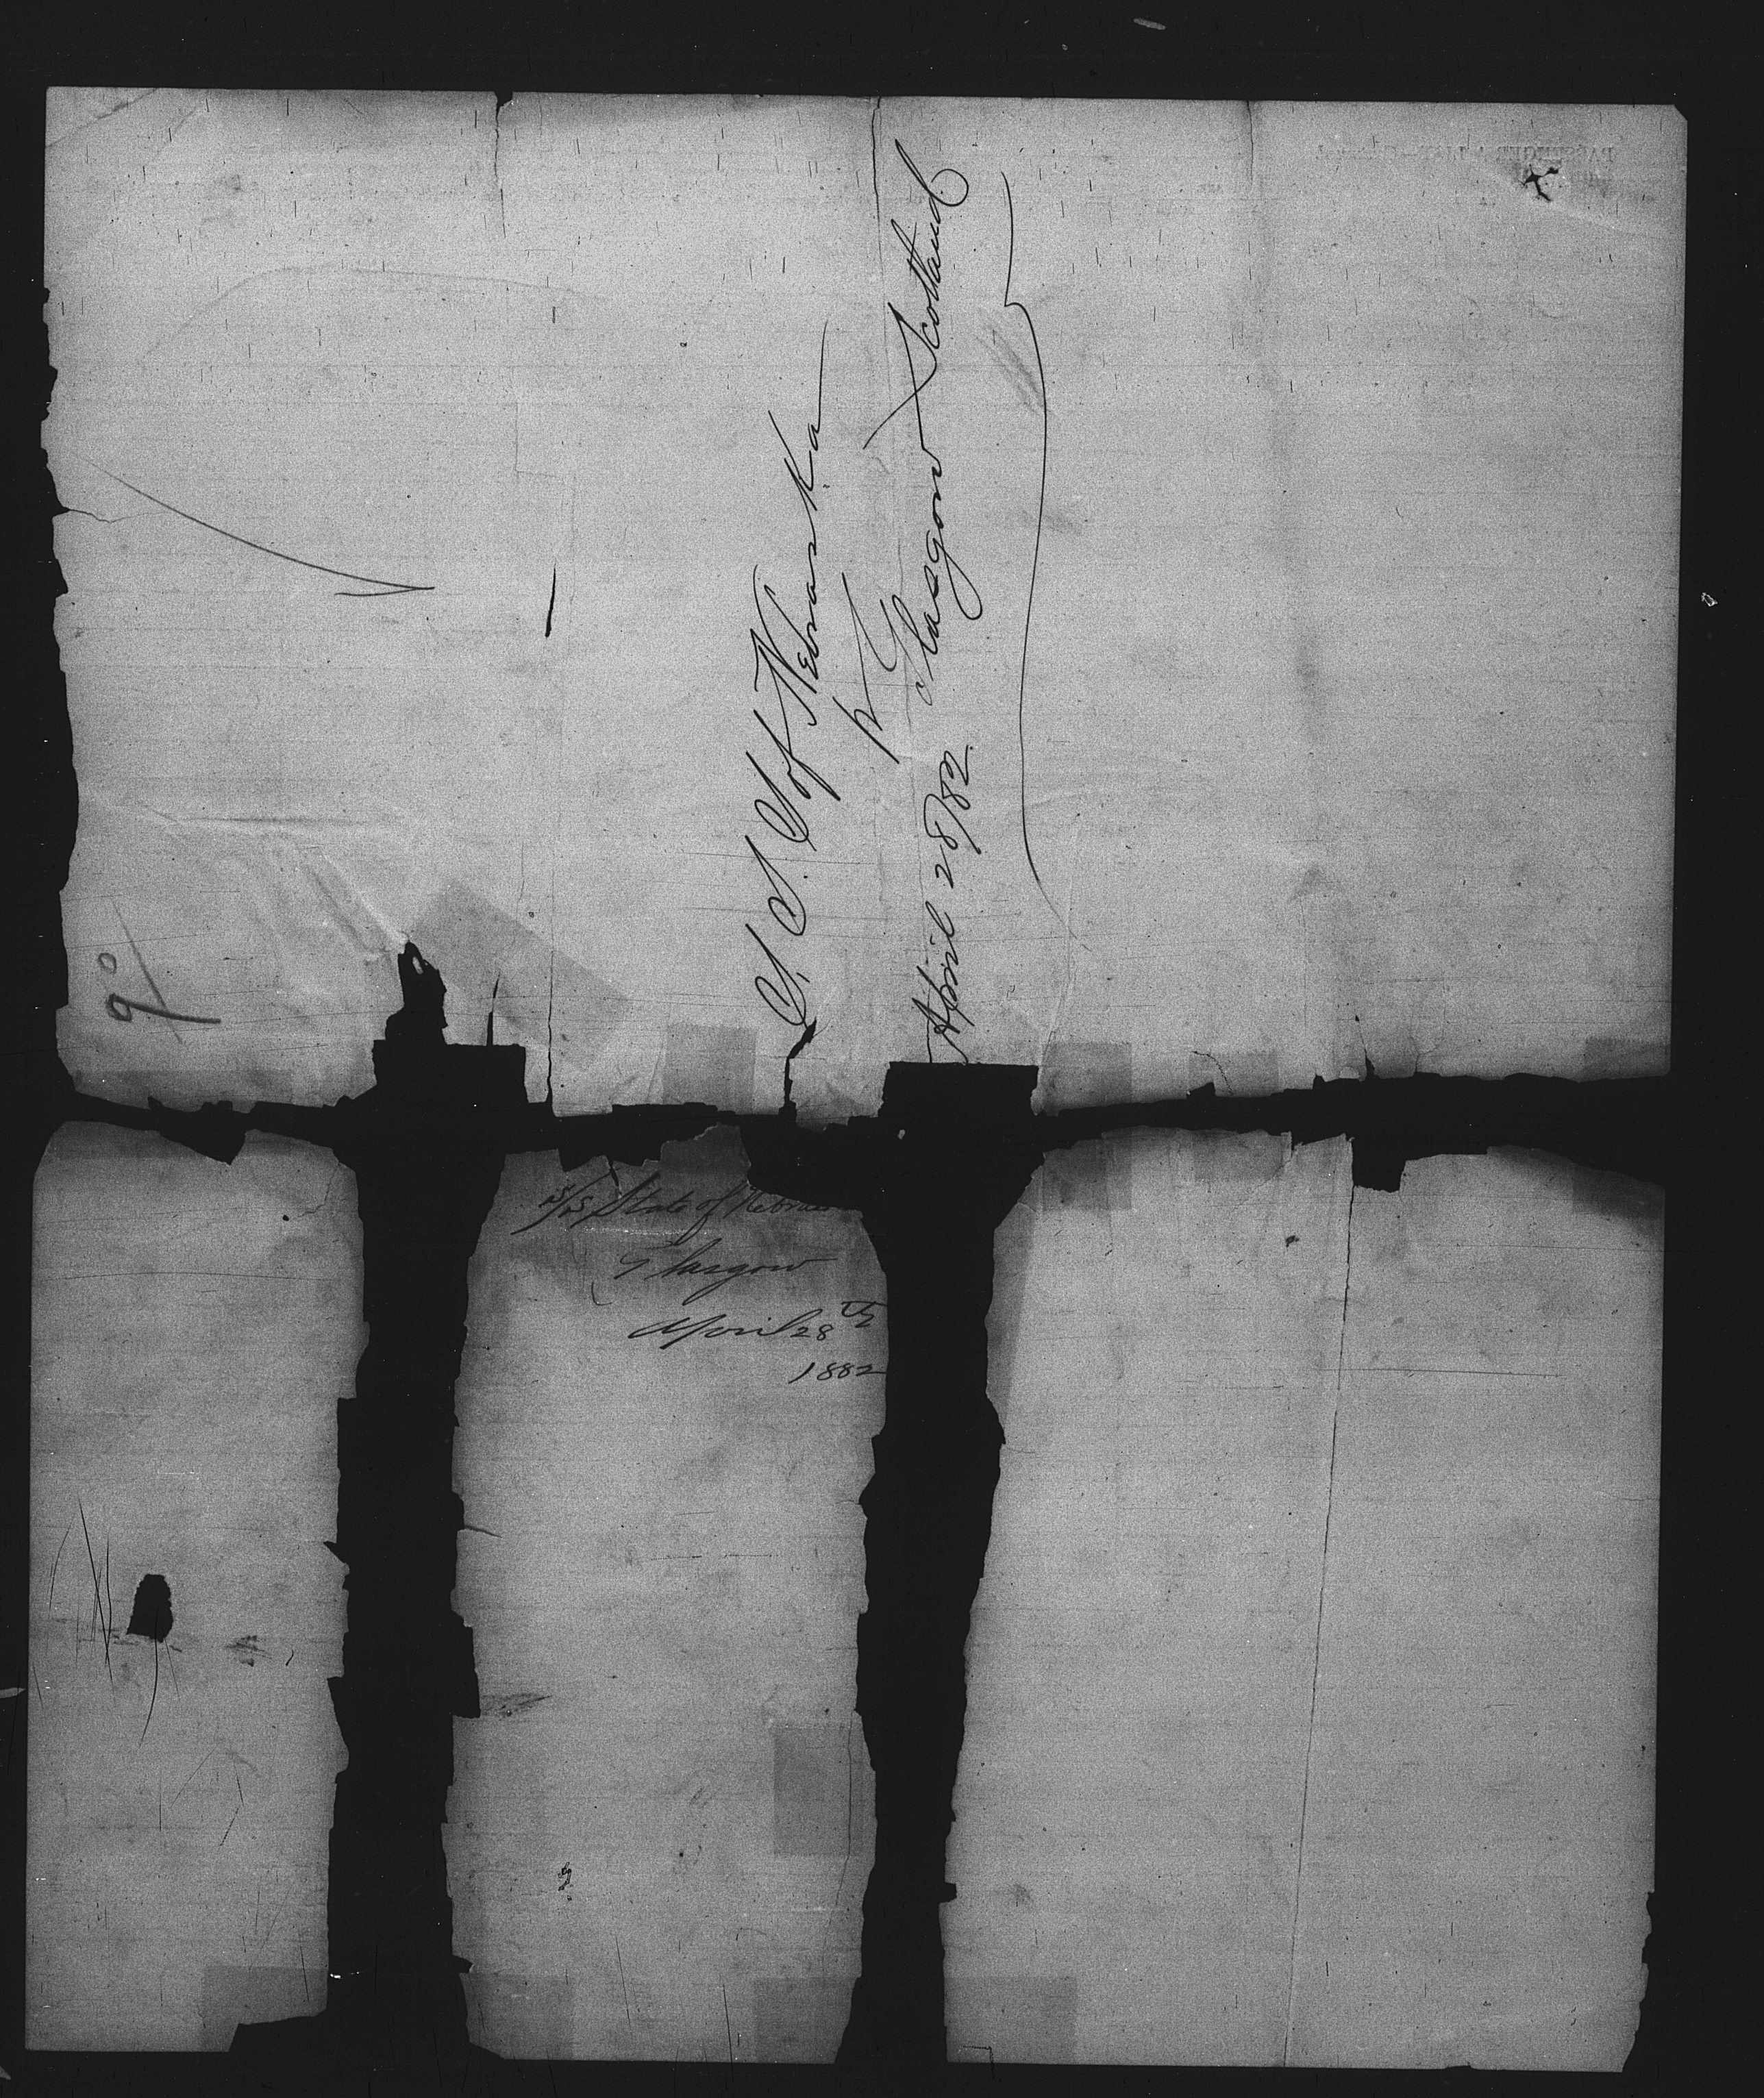 S. S. S of Nebraska
fr Glasgow Scotland
April 28/82
90
S/S State of Nebras
Glasgow
April 28th
1882